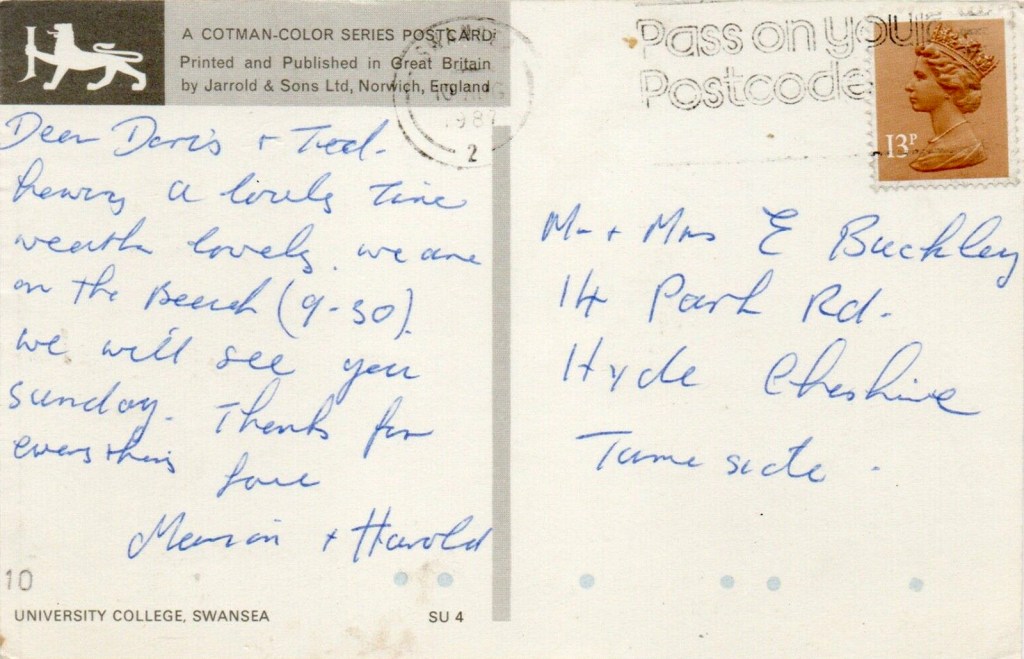 A COTMAN-COLOR SERIES POSTCARD
Printed and Published in Great Britain
by Jarrold & Sons Ltd, Norwich, England
Dear Doris + Ted.
having a lovely time
weather lovely. we are
on the Beach (9-30).
we will see you
sunday. Thanks for
everything
love
Marion + Harold
10
UNIVERSITY COLLEGE, SWANSEA
SU 4
SWAN
10 AUG
1987
2
Pass on your
Postcode
13P
Mr + Mrs E Buckley
14 Park Rd.
Hyde Cheshire
Tameside.